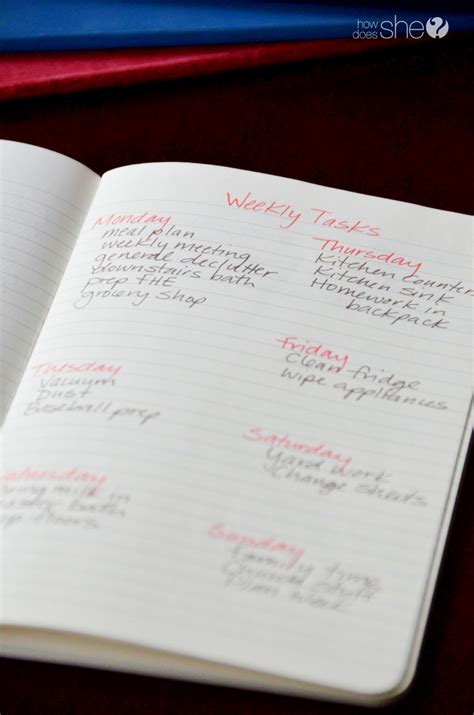 how does she?
Weekly Tasks
Monday
meal plan
weekly meeting
general declutter
downstairs bath
prep THE
grocery shop
Tuesday
Vacuum
Dust
Baseball prep
milk in
bath
floors
Thursday
Kitchen counters
Kitchen sink
Homework in
backpack
Friday
Clean fridge
Wipe appliances
Saturday
Yard work
Change sheets
Sunday
Family time
Church stuff
Plan week